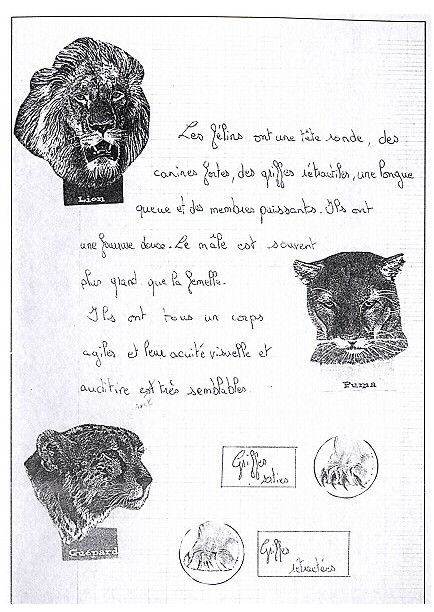 Lion
Les félins ont une tête ronde, des
canines fortes, des griffes rétractiles, une longue
queue et des membres puissants. Ils ont
une fourrure douce. Le mâle est souvent
plus grand que la femelle.
Ils ont tous un corps
agiles et leur acuité visuelle et
auditive est très semblables
Puma
Guépard
Griffes
sorties
Griffes
rétractées